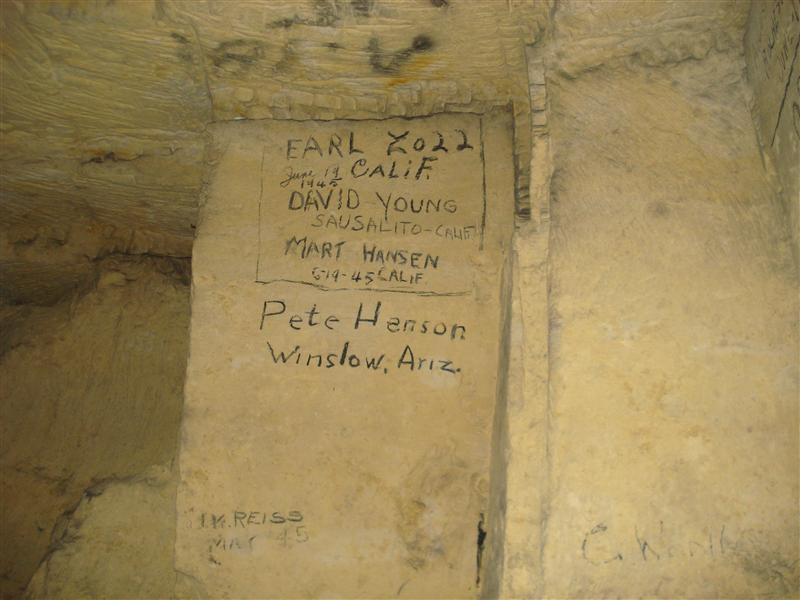 EARL ZOZZ
June 19 CALIF.
1945
DAVID YOUNG
SAUSALITO-CALIF
MART HANSEN
6-19-45 CALIF
Pete Hanson
Winslow, Ariz.
REISS
45
C.